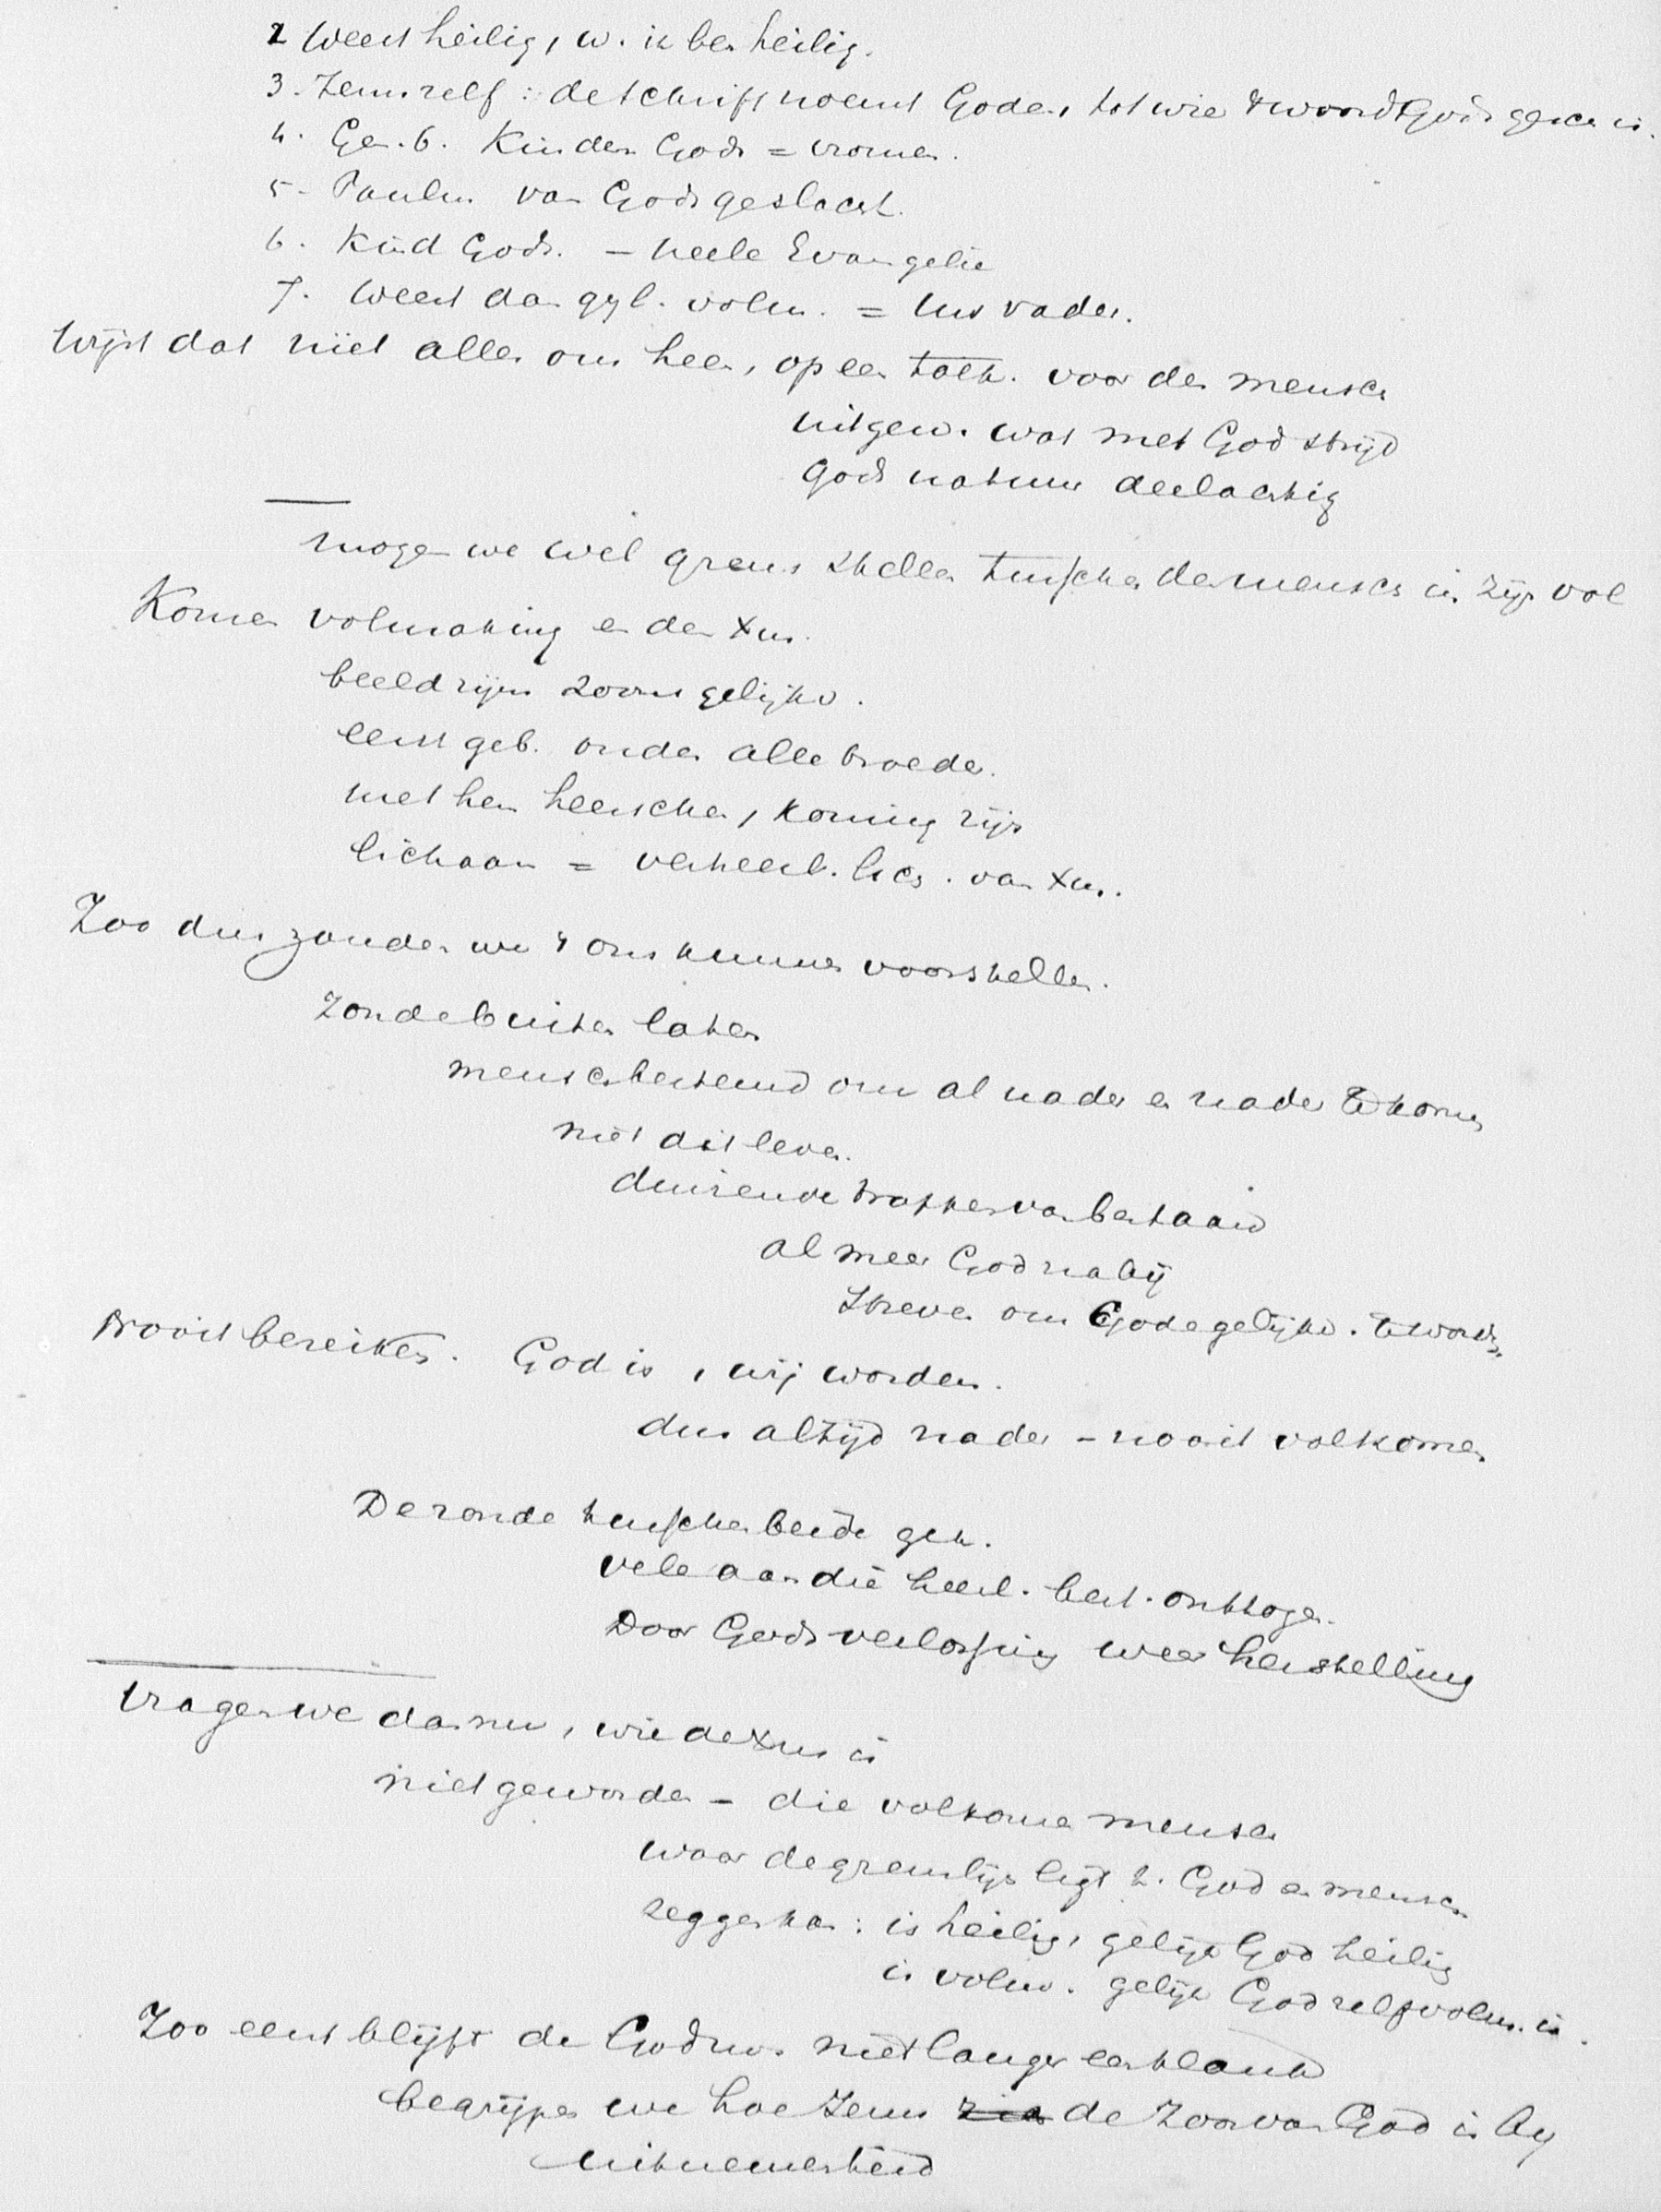 2 Weest heilig, w. ik ben heilig.
3. Jezus zelf: de schrift noemt Goden, tot wie 't woord Gods gesch. is.
4. Gen. 6. Kinderen Gods = vromen.
5 - Paulus van Gods geslacht.
6. Kind Gods. - heele Evangelie
7. Weest dan gyl. volm. = Uws vader.
Wijst dat niet alles ons heen, op een toek. voor den mensch
uitgew. wat met God strijd
Gods natuur deelachtig
mogen we wel grens stellen tusschen den mensch in zijn vol
Komen volmaking en den Xus.
beeld zijns zoons gelijkv.
eerst geb. onder alle broeder.
met hen heerschen, koning zijn
lichaam = verheerl. lich. van Xus.
Zoo dus zouden we 't ons kunnen voorstellen.
Zonde buiten laten
mensch bestemd om al nader en nader te komen
niet dit leven.
duizende trappen van bestaan
al meer God nabij
Streven om Gode gelijkv. te worden.
Nooit bereiken. God is, wij worden.
dus altijd nader - nooit volkomen
De zonde tusschen beide gek.
vele aan die heerl. best. onttogen.
Door Gods verlossing weer herstelling
Vragen we dan nu, wie de Xus is
niet geworden - die volkomen mensch
waar de grenslijn ligt t. God en mensch
zeggen kan: is heilig, gelijk God heilig
is volm. gelijk God zelf volm. is.
Zoo eerst blijft de Godm. niet langer een klank
begrijpen we hoe Jezus de Zoon van God is bij
uitnemenheid